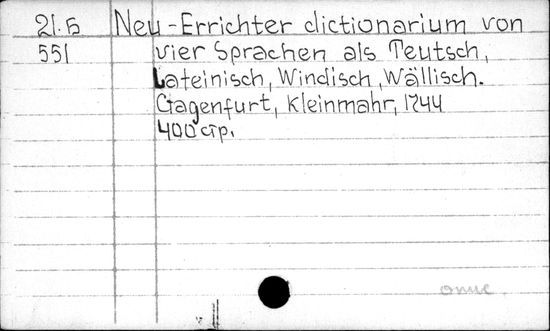 21.Б Neu-Errichter dictionarium von
551 vier Sprachen als Teutsch,
Lateinisch, Windisch, Wällisch.
Clagenfurt, Kleinmahr, 1744
400 стр.